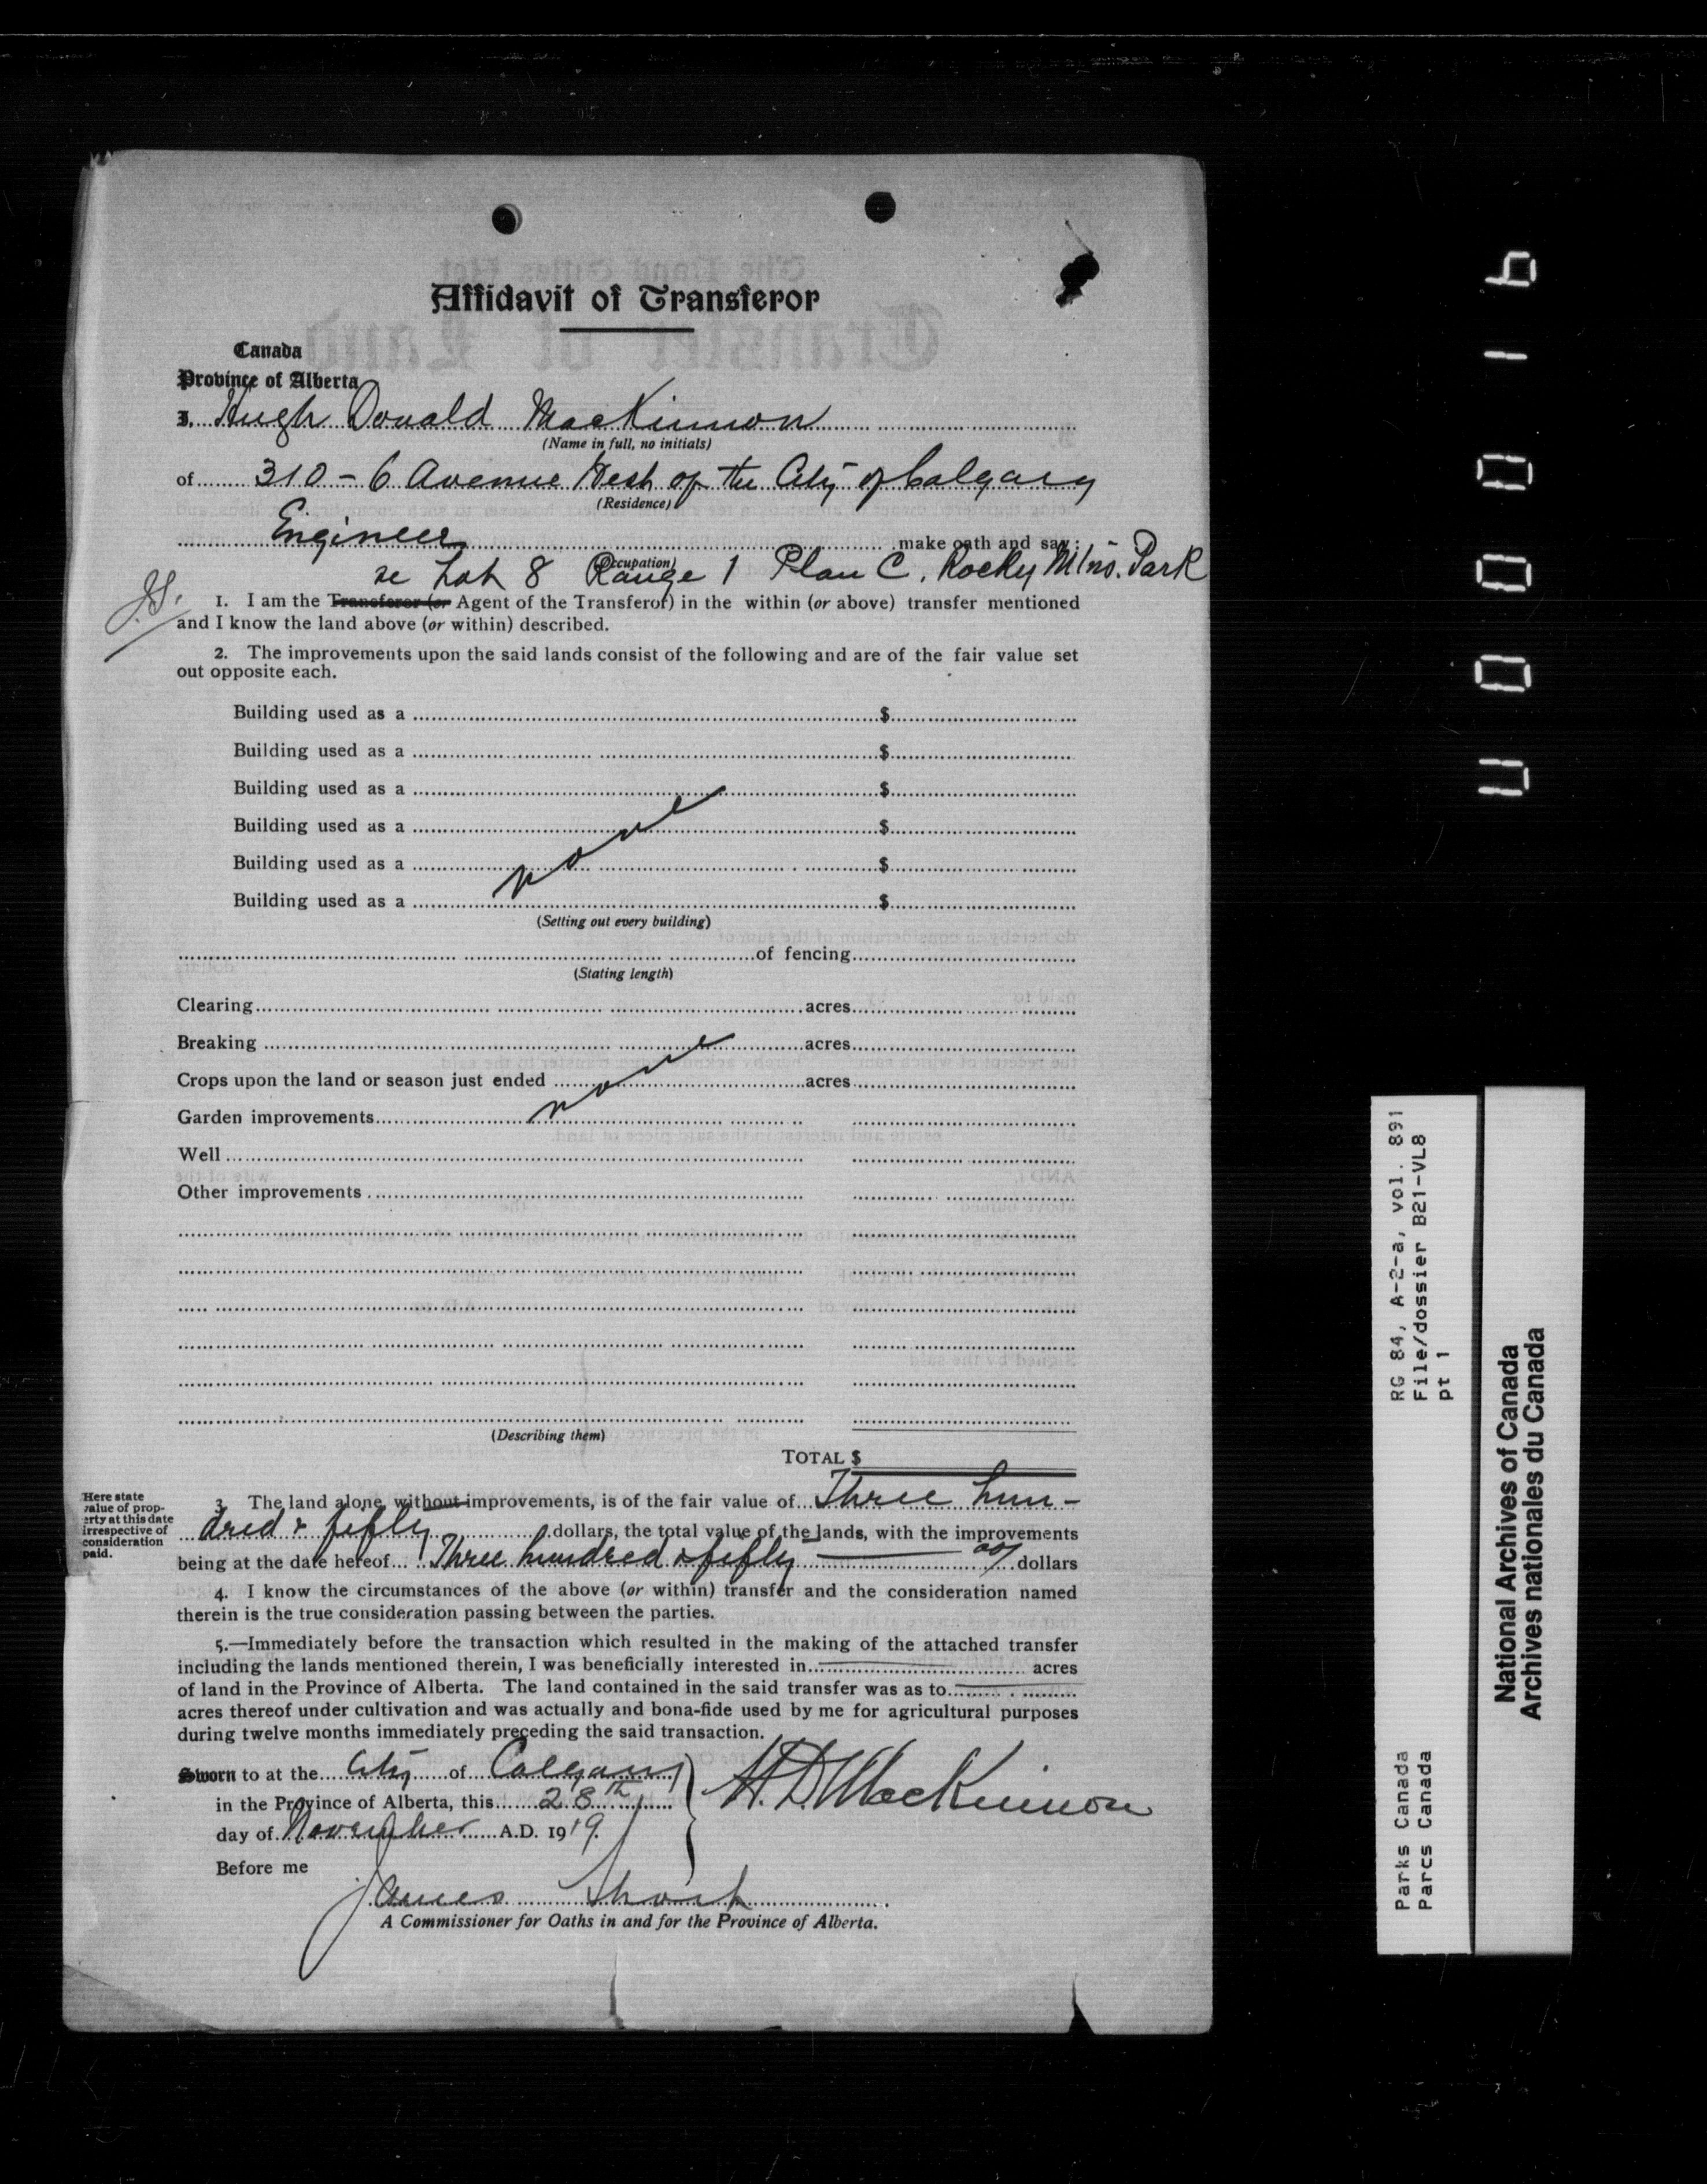 Affidavit of Transferor
Canada
Province of Alberta
I, Hugh Donald MacKinnon
(Name in full, no initials)
of 310 - 6 Avenue West of the City of Calgary
(Residence)
Engineer make oath and say:
(Occupation)
re Lot 8 Range 1 Plan C. Rocky Mtns. Park
J.S.
1. I am the Transferor (or Agent of the Transferor) in the within (or above) transfer mentioned
and I know the land above (or within) described.
2. The improvements upon the said lands consist of the following and are of the fair value set
out opposite each.
Building used as a $
Building used as a $
Building used as a $
Building used as a $
Building used as a $
Building used as a $
none
(Setting out every building)
of fencing
(Stating length)
Clearing acres
Breaking acres
Crops upon the land or season just ended acres
none
Garden improvements
Well
Other improvements
(Describing them)
TOTAL $
Here state
value of prop-
erty at this date
irrespective of
consideration
paid.
3. The land alone, without improvements, is of the fair value of Three hun-
dred & fifty dollars, the total value of the lands, with the improvements
being at the date hereof Three hundred & fifty 00/ dollars
4. I know the circumstances of the above (or within) transfer and the consideration named
therein is the true consideration passing between the parties.
5.—Immediately before the transaction which resulted in the making of the attached transfer
including the lands mentioned therein, I was beneficially interested in acres
of land in the Province of Alberta. The land contained in the said transfer was as to
acres thereof under cultivation and was actually and bona-fide used by me for agricultural purposes
during twelve months immediately preceding the said transaction.
Sworn to at the City of Calgary
in the Province of Alberta, this 28th
day of November A.D. 1919.
H. D. MacKinnon
Before me
James Short
A Commissioner for Oaths in and for the Province of Alberta.
U000 16
RG 84, A-2-a, vol. 891
File/dossier B21-VL8
pt 1
Parks Canada
Parcs Canada
National Archives of Canada
Archives nationales du Canada